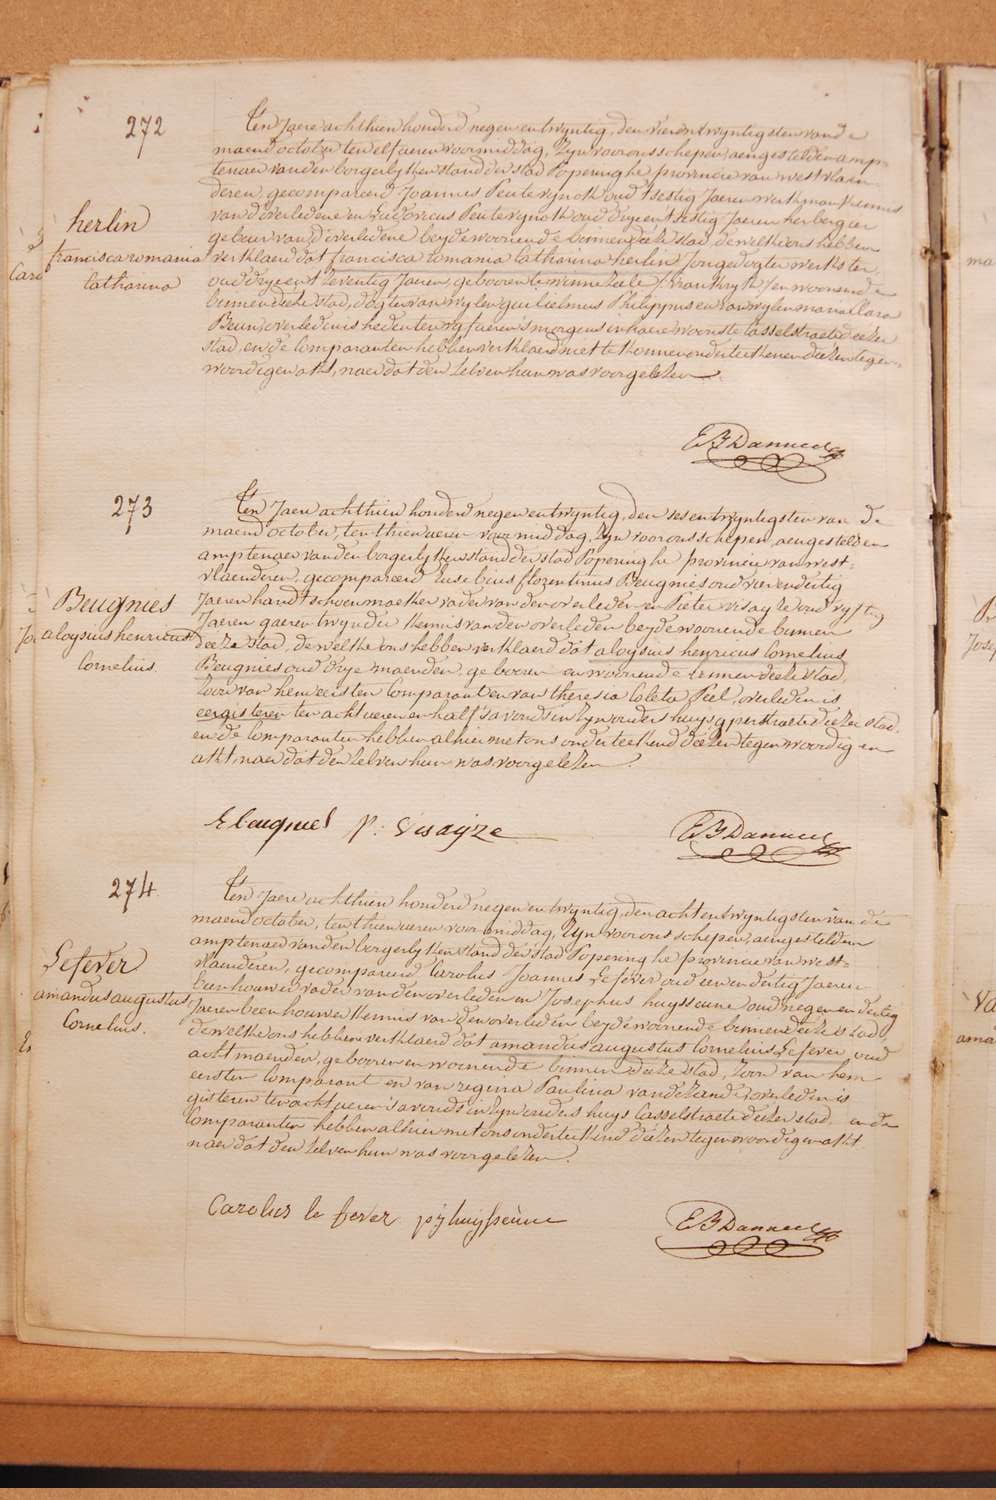 272
herlin
francisca romania
Catharina
Ten Jaere achthien honderd negen en twyntig, den vierentwyntigsten van de
maend october ten elf ueren voormiddag, Zyn voor ons schepen, aengestelden amp-
tenaer van den borgerlyken stand der stad Poperinghe provincie van westvlaen-
deren, gecompareerd Joannes Peuterynck oud sestig Jaeren werkman kennis
van d'overledene en Ludovicus Peuterynck oud dryentsestig Jaeren herbergier
gebuer van d'overledene beyde woonende binnen deeze stad, de welke ons hebben
verklaerd dat francisca romania Catharina herlin Jongedogter werkster
oud dryentzeventig Jaeren, geboren te winnezeele Frankryk en woonende
binnen deeze stad, dogter van wylen guilielmus Philippus en van wylen maria Clara
Beun, overleden is heden ten vyf ueren 's morgens in haere woonste Casselstraete deezer
stad, en de Comparanten hebben verklaerd niet te konnen onderteekenen deezen tegen-
woordigen akt, naer dat den zelven hun was voorgelezen.
E B Danneel
273
Beugnies
aloysius henricus
Cornelius
Ten Jaere achthien honderd negen en twyntig, den sesentwyntigsten van de
maend october, ten thien ueren voormiddag, Zyn voor ons schepen, aengestelden
amptenaer van den borgerlyken stand der stad Poperinghe provincie van west-
vlaenderen, gecompareerd Eusebius florentinus Beugnies oud vierendertig
Jaeren handschoenmaeker vader van den overleden en Pieter visayze oud vyftig
Jaeren gaerentwynder kennis van den overleden beyde woonende binnen
deeze stad, de welke ons hebben verklaerd dat aloysius henricus Cornelius
Beugnies oud drye maenden, geboren en woonende binnen deeze stad,
Zoon van hem eersten Comparant en van theresia Coleta Peel, overleden is
eergisteren ten acht ueren en half 's avonds in Zyn ouders huys gperstraete deezer stad,
en de Comparanten hebben alhier met ons onderteekend deezen tegenwoordigen
akt, naer dat den zelven hun was voorgelezen.
E beugnies P: Visayze E B Danneel
274
Lefever
amandus augustus
Cornelius.
Ten Jaere achthien honderd negen en twyntig, den achtentwyntigsten van de
maend october, ten thien ueren voormiddag, Zyn voor ons schepen, aengestelden
amptenaer van den borgerlyken stand der stad Poperinghe provincie van west-
vlaenderen, gecompareerd Carolus Joannes Lefever oud eenendertig Jaeren
beenhouwer vader van den overleden en Josephus huysseune oud negenendertig
Jaeren beenhouwer kennis van den overleden beyde woonende binnen deeze stad,
de welke ons hebben verklaerd dat amandus augustus Cornelius Lefever, oud
acht maenden, geboren en woonende binnen deeze stad, Zoon van hem
eersten Comparant en van regina Paulina vandezande, overleden is
gisteren ten acht ueren 's avonds in Zyn ouders huys Casselstraete deezer stad, en de
Comparanten hebben alhier met ons onderteekend deezen tegenwoordigen akt
naer dat den zelven hun was voorgelezen.
Carolus le fever p j huysseune E B Danneel